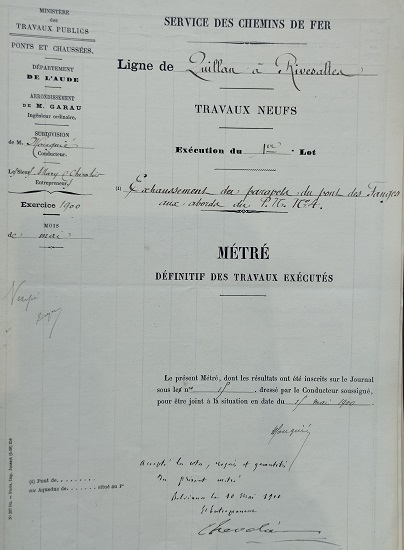 MINISTÈRE
des
TRAVAUX PUBLICS
PONTS ET CHAUSSÉES.
DÉPARTEMENT
DE L'AUDE
ARRONDISSEMENT
DE M. GARAU
Ingénieur ordinaire.
SUBDIVISION
de M. Mouquié
Conducteur.
Entrepreneur
Exercice 1900
MOIS
de mai
SERVICE DES CHEMINS DE FER
Ligne de Quillan à Rivesaltes
TRAVAUX NEUFS
Exécution du 1er Lot
(1) Exhaussement du parapet du pont des Fanges
aux abords du P. N. No 4.
MÉTRÉ
DÉFINITIF DES TRAVAUX EXÉCUTÉS
Le présent Métré, dont les résultats ont été inscrits sur le Journal
sous les nos 15 dressé par le Conducteur soussigné,
pour être joint à la situation en date du 15 mai 1900
Mouquié
Accepté les
du présent métré
le 10 mai 1900
L'Entrepreneur
(1) Pont de
ou Aqueduc de situé au P